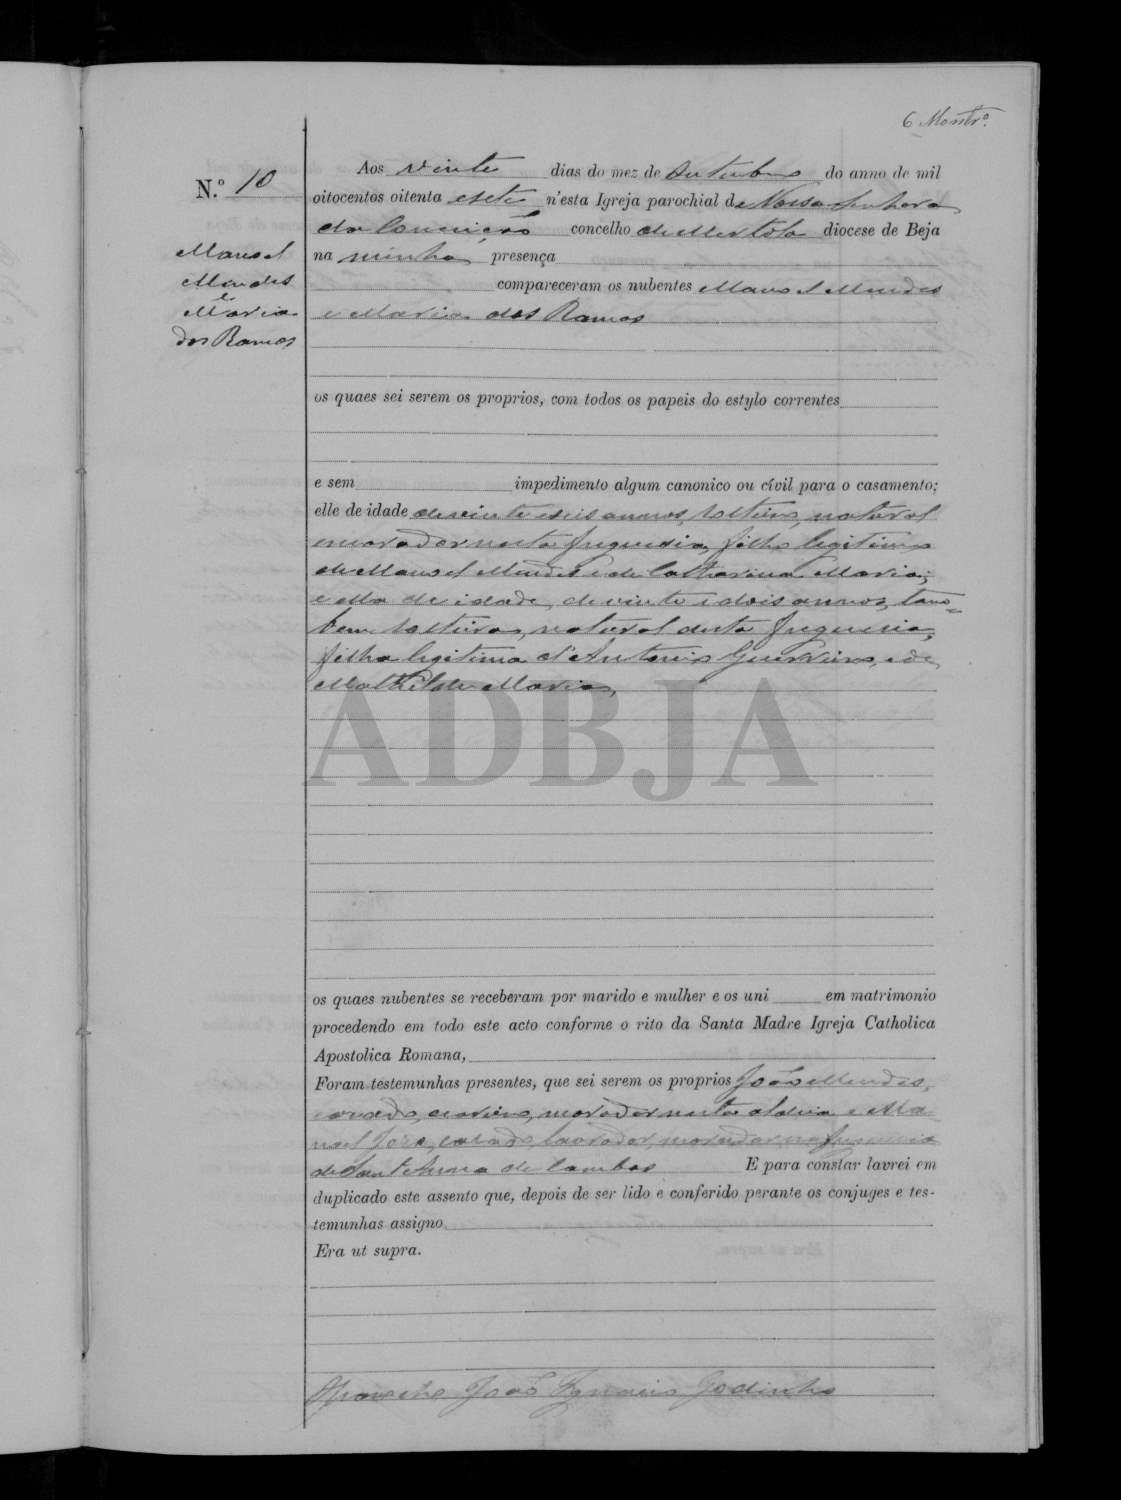 6 Montrº.
N.º 10
Manoel
Mendes
e
Maria
dos Ramos
Aos vinte dias do mez de Outubro do anno de mil
oitocentos oitenta e sete n'esta Igreja parochial de Nossa Senhora
da Conceição concelho de Mertola diocese de Beja
na minha presença
compareceram os nubentes Manoel Mendes
e Maria dos Ramos
os quaes sei serem os proprios, com todos os papeis do estylo correntes
e sem impedimento algum canonico ou civil para o casamento;
elle de idade de vinte e seis annos, solteiro, natural
e morador nesta freguesia, filho legitimo
de Manoel Mendes e de Catharina Maria;
e ella de idade de vinte e dois annos, tam=
bem solteira, natural desta freguesia,
filha legitima d'Antonio Guerreiro, e de
Mathilde Maria,
ADBJA
os quaes nubentes se receberam por marido e mulher e os uni em matrimonio
procedendo em todo este acto conforme o rito da Santa Madre Igreja Catholica
Apostolica Romana,
Foram testemunhas presentes, que sei serem os proprios João Mendes,
casado, morador nesta aldeia e Ma-
noel José, casado, lavrador, morador na freguesia
de Sant'Anna de Cambas E para constar lavrei em
duplicado este assento que, depois de ser lido e conferido perante os conjuges e tes-
temunhas assigno
Era ut supra.
O Parocho João Ignacio Godinho